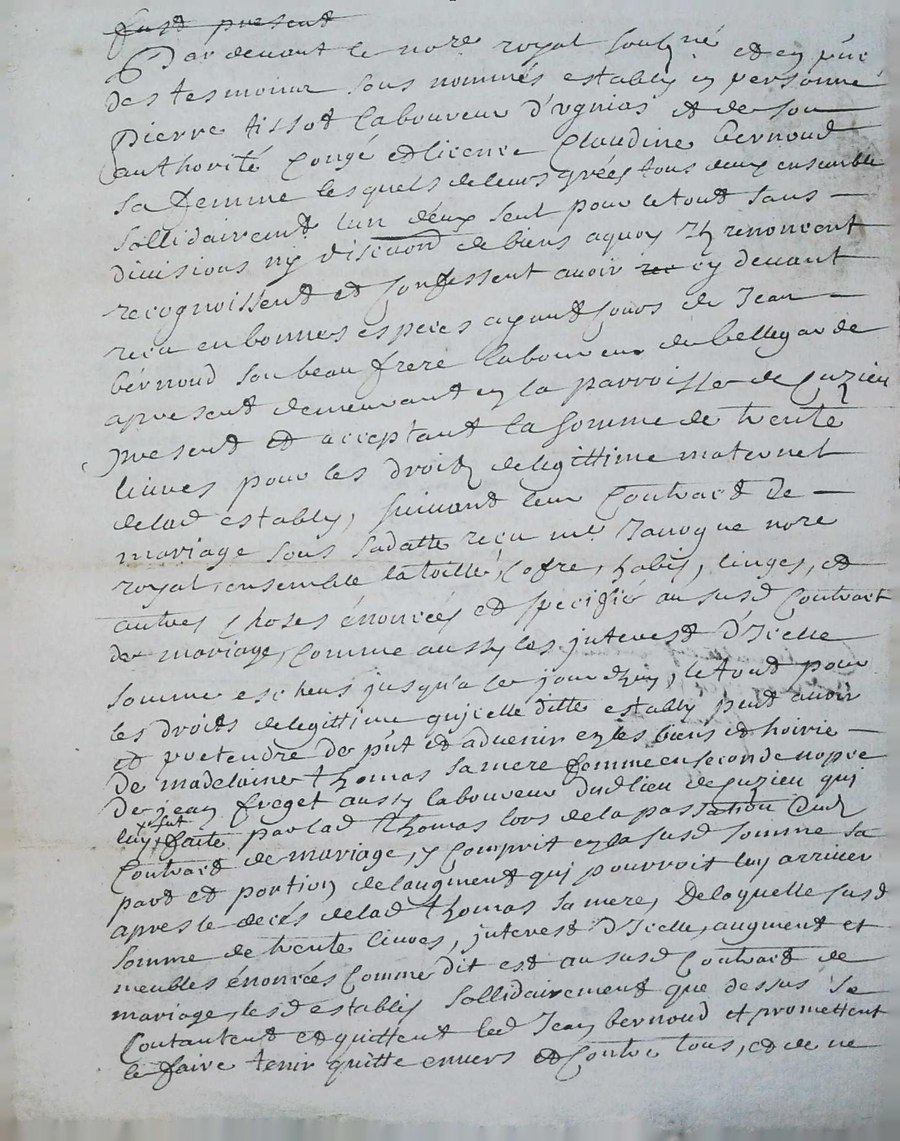 fust present
Par devant le nore royal soubné et en pnce
des tesmoins sous nommés estably en personne
Pierre tissot laboureur d'vgnias et de son
authorité Congé et licence Claudine bernoud
sa femme lesquels de leurs gréés tous deux ensemble
sollidairement lun deux seul pour le tout sans
divisions ny discuon de biens aquoy Ils renoncent
recognoissent et Confessent avoir rec cy devant
reçu en bonnes especes ayant Cours de Jean
bernoud son beau frere laboureur de bellegarde
apresent demeurant en la parroisse de Cuzieu
present et acceptant la Somme de trente
livres pour les droits de legittime maternel
de lad establis, suivant leur Contract de
mariage sous sa datte reçu me Janoque nore
royal, ensemble la toille, Cofre, habis, linges, et
autres choses énoncées et specifié au susd Contract
de mariage, Comme aussy les jnterest d'Icelle
somme escheus jusqu'a ce jourdhuy, le tout pour
les droits de legittime qu'icelle ditte establis peut avoir
et pretendre de pnt et advenir en les biens et hoirie
de madelaine thomas sa mere femme en seconde nopce
de jean freget aussy laboureur dud lieu de Cuzieu qui
luy fut faite par lad thomas lors de la passation dud
Contract de mariage, y Comprit en la susd somme sa
part et portion de laugment qui pourroit luy arriver
apres le decés de lad thomas sa mere, De laquelle susd
somme de trente livres, jnterest d'Icelle, augment et
meubles énoncées Comme dit est au susd Contract de
mariage, lesd establis sollidairement que dessus se
Contantent et quittent led Jean bernoud et promettent
le faire tenir quitte envers et Contre tous, et de ne